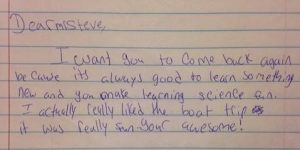 Dear misteve,
I want you to Come back again
because its always good to learn something
new and you make learning science fun.
I actually really liked the boat trip
it was really fun. your awesome!